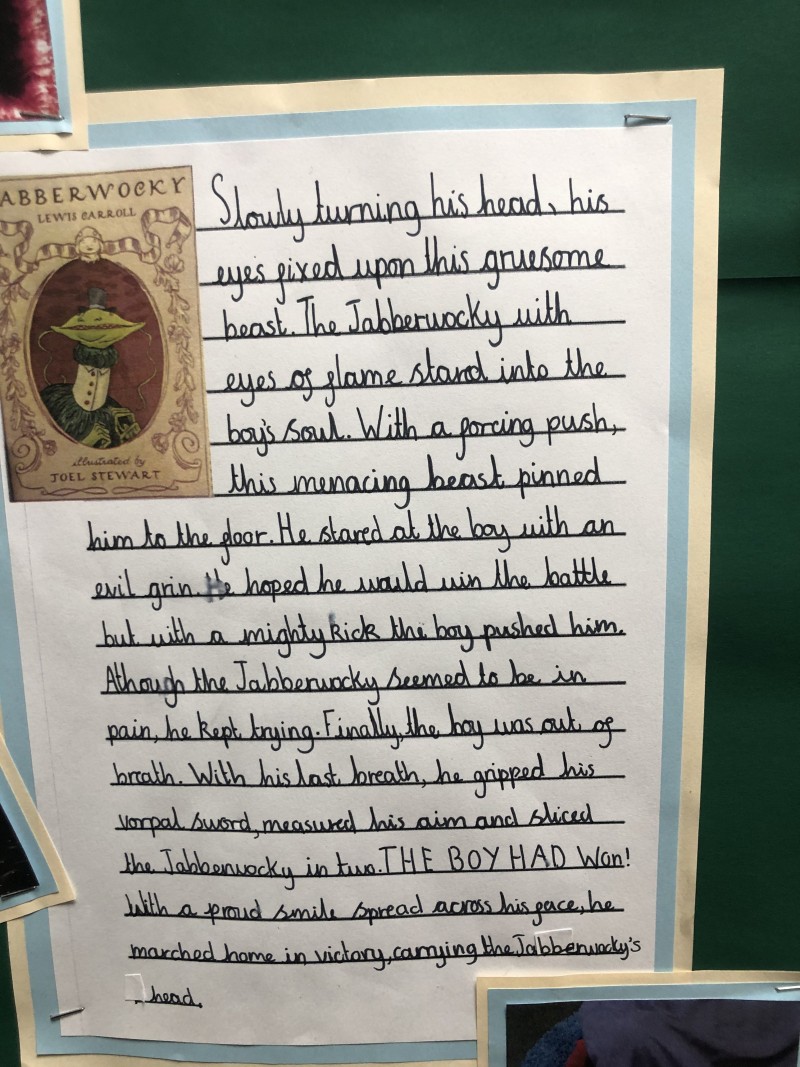 ABBERWOCKY
LEWIS CARROLL
illustrated by
JOEL STEWART
Slowly turning his head, his
eyes fixed upon this gruesome
beast. The Jabberwocky with
eyes of flame stard into the
boy's soul. With a forcing push,
this menacing beast pinned
him to the floor. He stared at the boy with an
evil grin. He hoped he would win the battle
but with a mighty kick the boy pushed him.
Athough the Jabberwocky seemed to be in
pain, he kept trying. Finally, the boy was out of
breath. With his last breath, he gripped his
vorpal sword, measured his aim and sliced
the Jabberwocky in two. THE BOY HAD Won!
With a proud smile spread across his face, he
marched home in victory, carrying the Jabberwocky's
head.